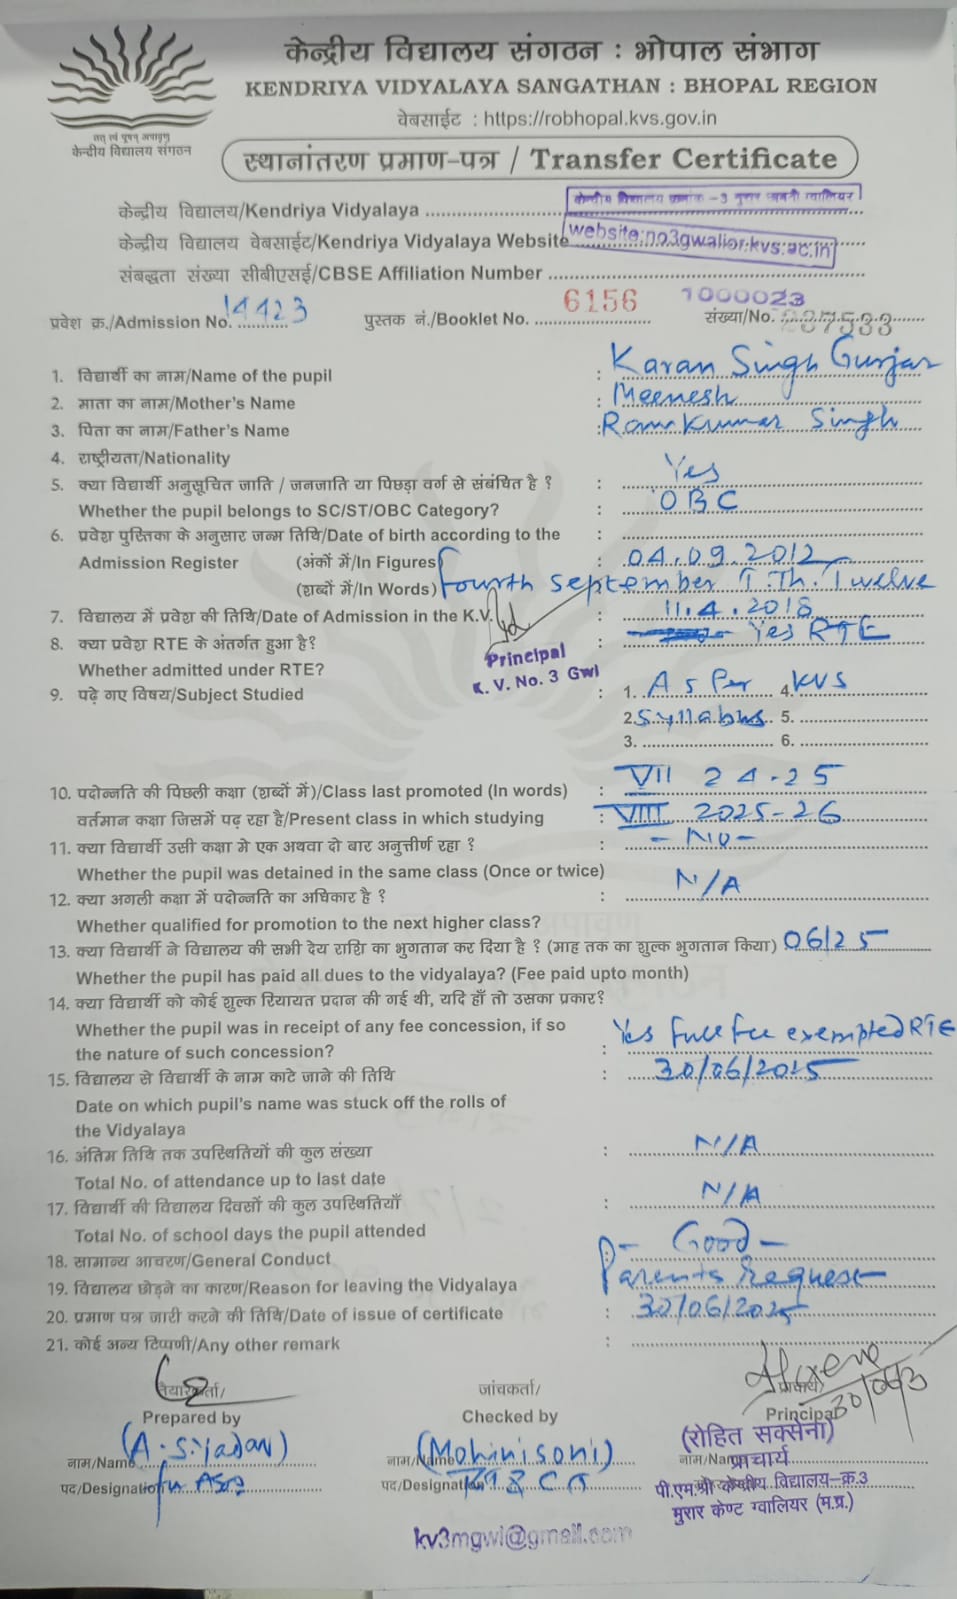 केन्द्रीय विद्यालय संगठन : भोपाल संभाग
KENDRIYA VIDYALAYA SANGATHAN : BHOPAL REGION
वेबसाईट : https://robhopal.kvs.gov.in
तत् त्वं पूषन् अपावृणु
केन्द्रीय विद्यालय संगठन
स्थानांतरण प्रमाण-पत्र / Transfer Certificate
केन्द्रीय विद्यालय/Kendriya Vidyalaya केन्द्रीय विद्यालय क्रमांक -3 मुरार छावनी ग्वालियर
केन्द्रीय विद्यालय वेबसाईट/Kendriya Vidyalaya Website website:no3gwalior.kvs.ac.in
संबद्धता संख्या सीबीएसई/CBSE Affiliation Number 1000023
प्रवेश क्र./Admission No. 14423 पुस्तक नं./Booklet No. 6156 संख्या/No. 237533
1. विद्यार्थी का नाम/Name of the pupil : Karan Singh Gurjar
2. माता का नाम/Mother's Name : Meenesh
3. पिता का नाम/Father's Name : Ramkumar Singh
4. राष्ट्रीयता/Nationality
5. क्या विद्यार्थी अनुसूचित जाति / जनजाति या पिछड़ा वर्ग से संबंधित है ? : Yes
Whether the pupil belongs to SC/ST/OBC Category? : OBC
6. प्रवेश पुस्तिका के अनुसार जन्म तिथि/Date of birth according to the :
Admission Register (अंकों में/In Figures) : 04.09.2012
(शब्दों में/In Words) Fourth September T.Th. Twelve
7. विद्यालय में प्रवेश की तिथि/Date of Admission in the K.V. : 11.4.2018
8. क्या प्रवेश RTE के अंतर्गत हुआ है? : Yes RTE
Whether admitted under RTE?
Principal
K. V. No. 3 Gwl
9. पढ़े गए विषय/Subject Studied : 1. As Per 4. KVS
2. Syllabus 5.
3. 6.
10. पदोन्नति की पिछली कक्षा (शब्दों में)/Class last promoted (In words) : VII 24-25
वर्तमान कक्षा जिसमें पढ़ रहा है/Present class in which studying : VIII 2025-26
11. क्या विद्यार्थी उसी कक्षा मे एक अथवा दो बार अनुत्तीर्ण रहा ? : - No -
Whether the pupil was detained in the same class (Once or twice)
12. क्या अगली कक्षा में पदोन्नति का अधिकार है ? : N/A
Whether qualified for promotion to the next higher class?
13. क्या विद्यार्थी ने विद्यालय की सभी देय राशि का भुगतान कर दिया है ? (माह तक का शुल्क भुगतान किया) 06/25
Whether the pupil has paid all dues to the vidyalaya? (Fee paid upto month)
14. क्या विद्यार्थी को कोई शुल्क रियायत प्रदान की गई थी, यदि हाँ तो उसका प्रकार?
Whether the pupil was in receipt of any fee concession, if so
the nature of such concession? : Yes Full fee exempted RTE
15. विद्यालय से विद्यार्थी के नाम काटे जाने की तिथि : 30/06/2025
Date on which pupil's name was stuck off the rolls of
the Vidyalaya
16. अंतिम तिथि तक उपस्थितियों की कुल संख्या : N/A
Total No. of attendance up to last date
17. विद्यार्थी की विद्यालय दिवसों की कुल उपस्थितियाँ : N/A
Total No. of school days the pupil attended
18. सामान्य आचरण/General Conduct : - Good -
19. विद्यालय छोड़ने का कारण/Reason for leaving the Vidyalaya : Parents Request
20. प्रमाण पत्र जारी करने की तिथि/Date of issue of certificate : 30/06/2025
21. कोई अन्य टिप्पणी/Any other remark :
तैयारकर्ता/ जांचकर्ता/ प्राचार्य/
Prepared by Checked by Principal
(A.S. Yadav) (Mohini soni) (रोहित सक्सेना)
नाम/Name नाम/Name नाम/Name प्राचार्य
पद/Designation पद/Designation पी.एम.श्री केन्द्रीय विद्यालय-क्र.3
मुरार केण्ट ग्वालियर (म.प्र.)
kv3mgwl@gmail.com